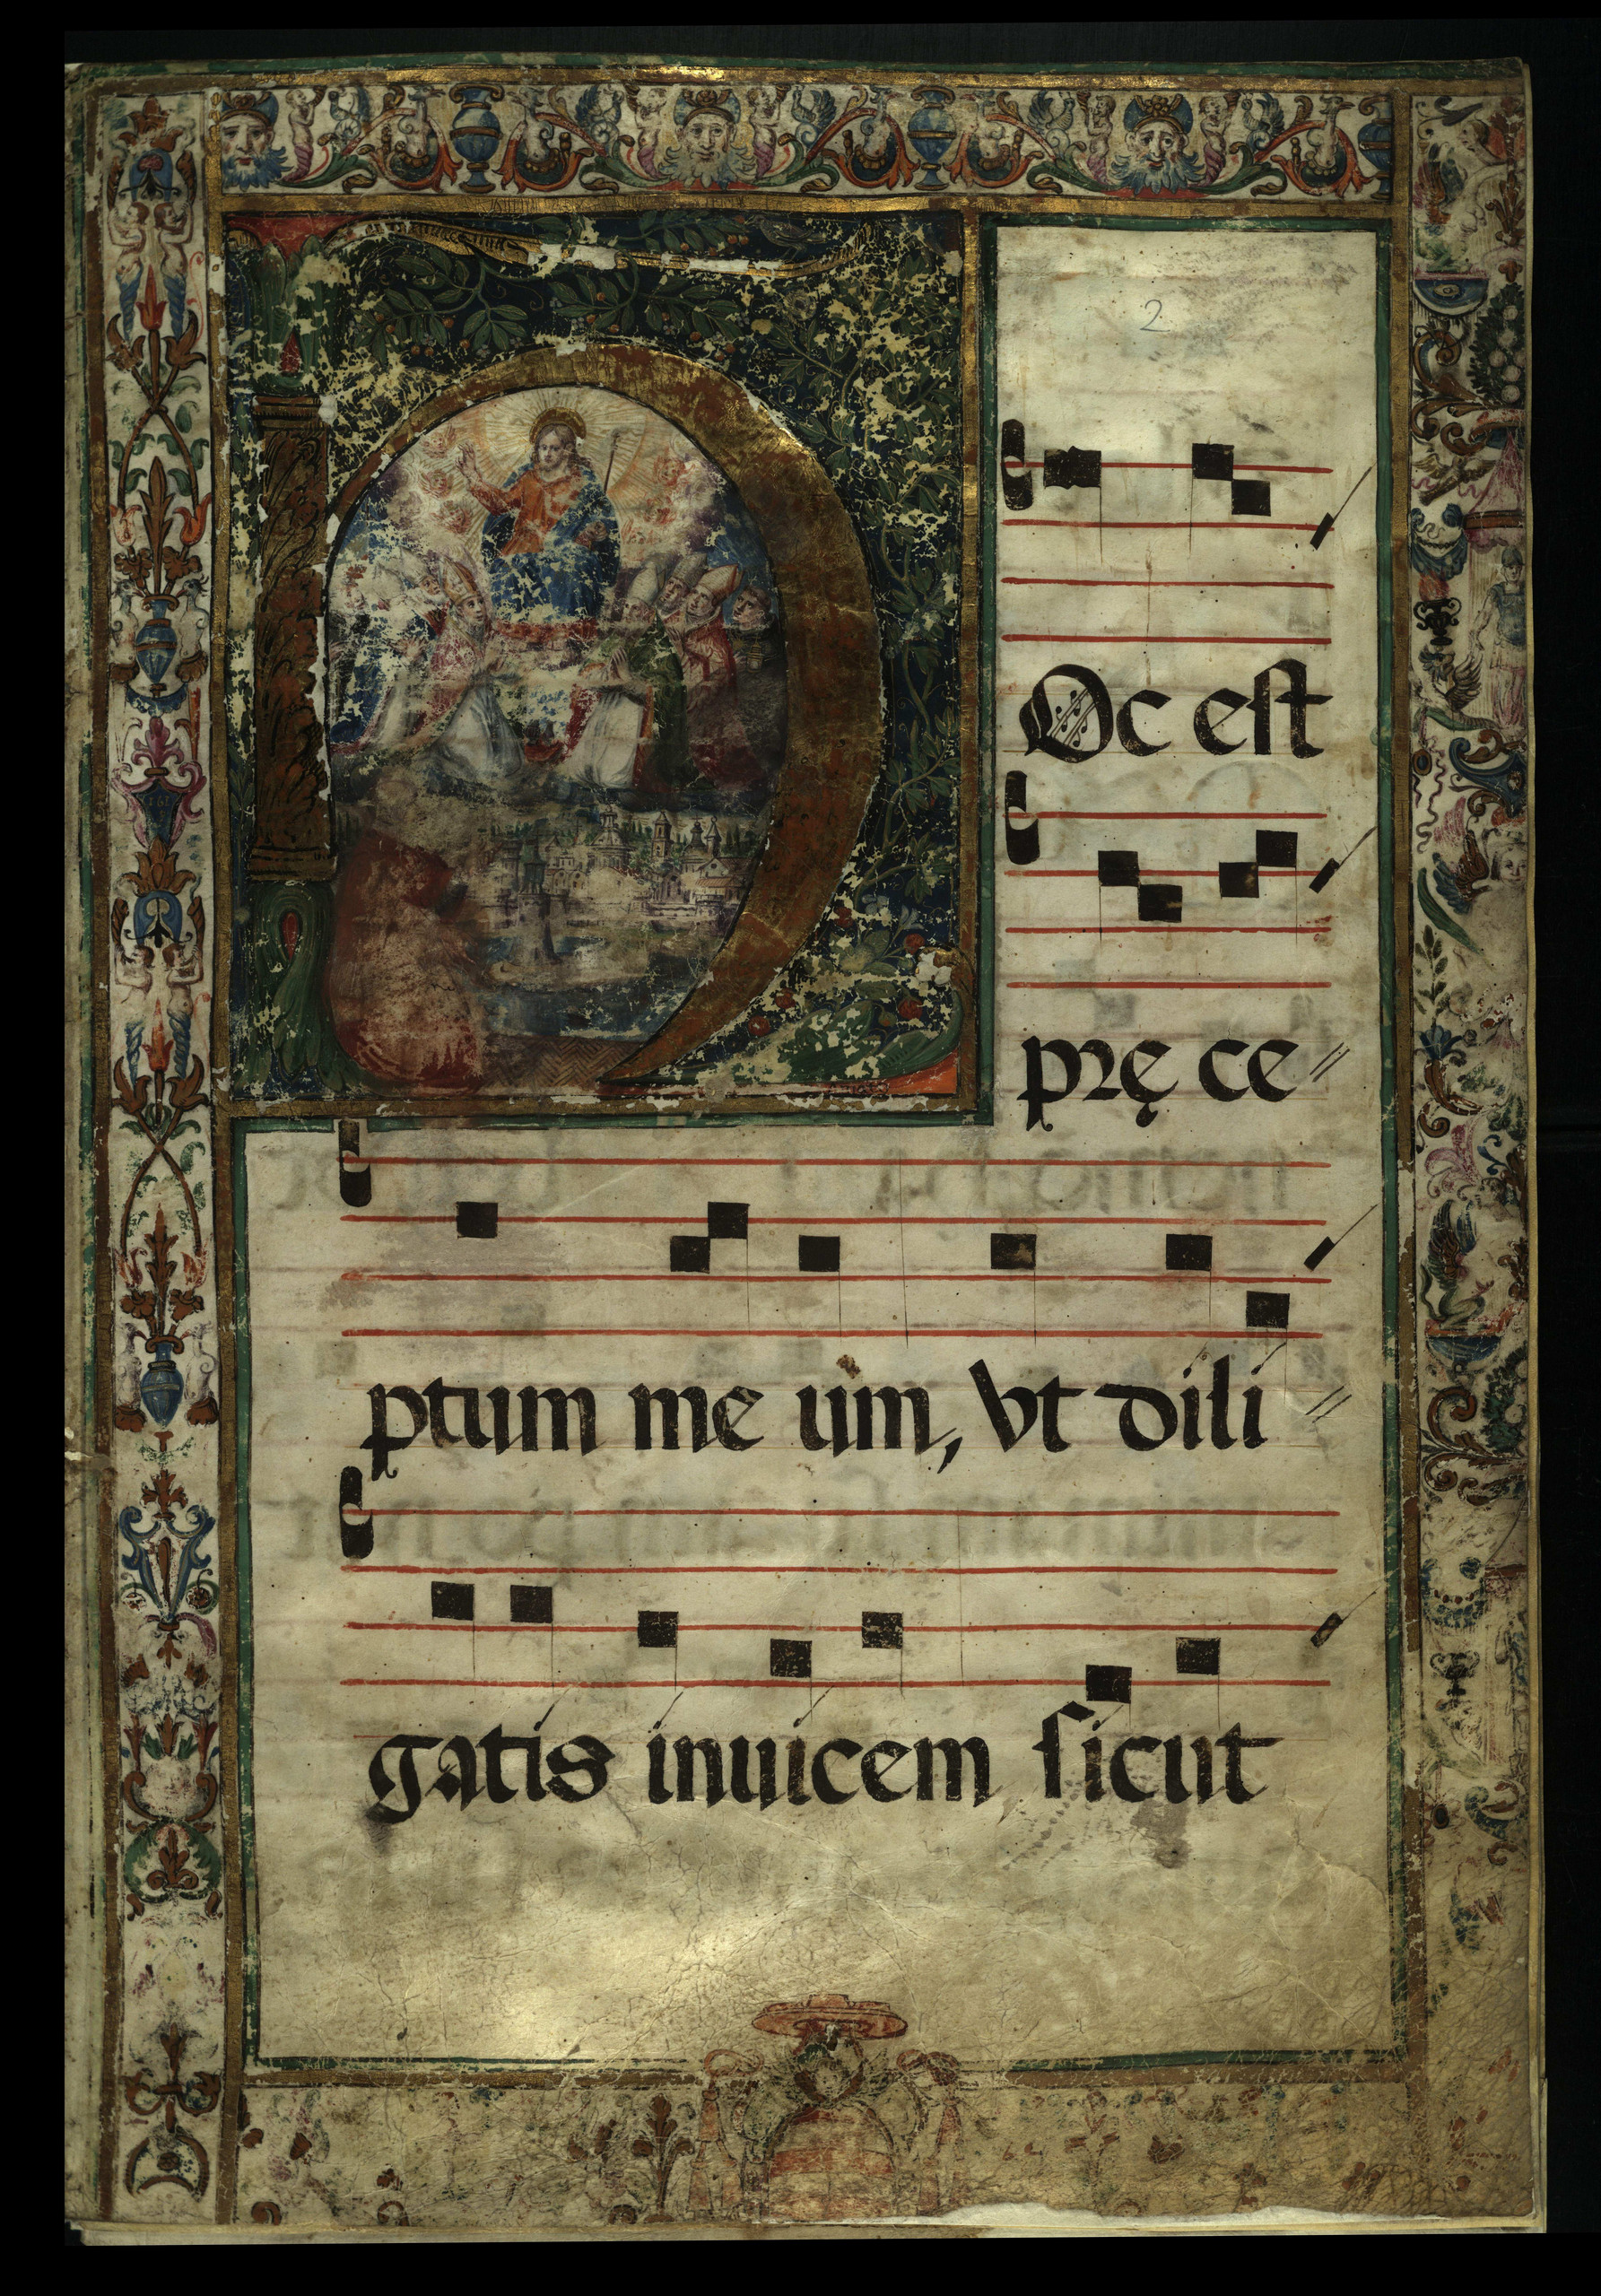 2
Oc est
prę ce//
ptum me um, vt dili//
gatis inuicem sicut